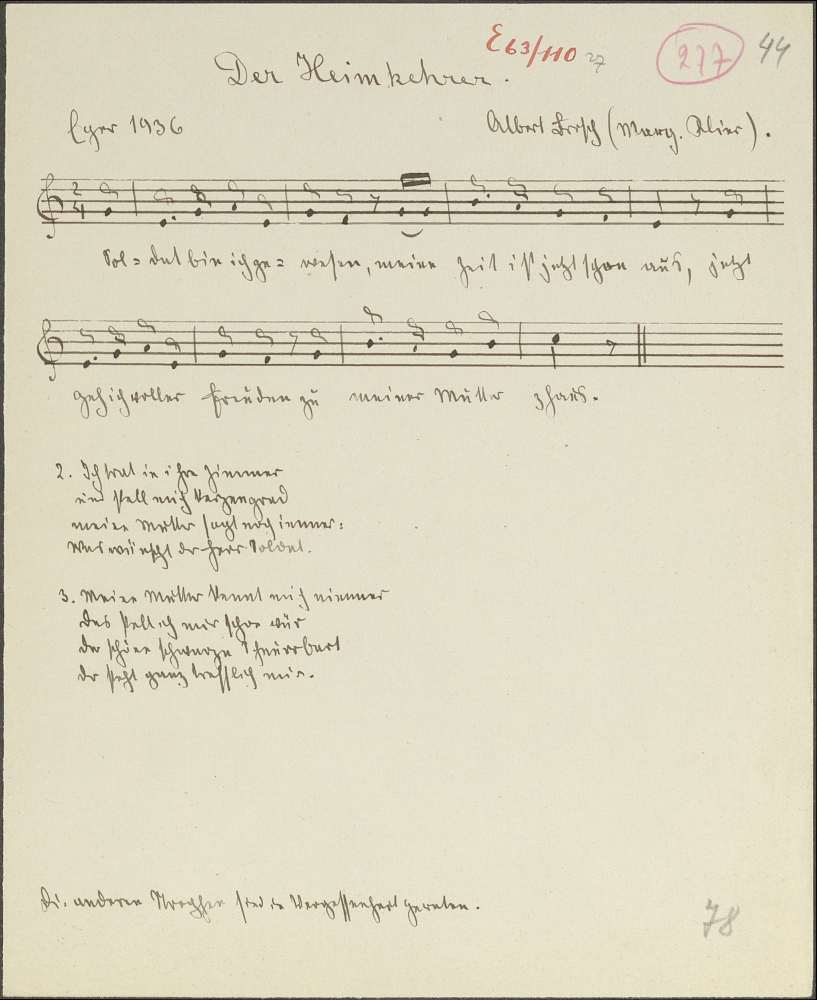 E 63/110 27 277 44
Der Heimkehrer.
Eger 1936 Albert Brosch (Marg. Klier).
2/4
Sol= dat bin ich ge= wesen, meine Zeit ist jetzt schon aus, jetzt
geh ich voller Freuden zu meiner Mutter z'haus.
2. Ich trat in ihre Zimmer
und stell mich kerzengrad
meine Mutter sagt noch immer:
Was wünscht der Herr Soldat.
3. Meine Mutter kennt mich nimmer
das stell ich mir schon vür
der schöne schwarze Schnurrbart
der steht ganz trefflich mir.
Die anderen Strophen sind in Vergessenheit geraten.
78